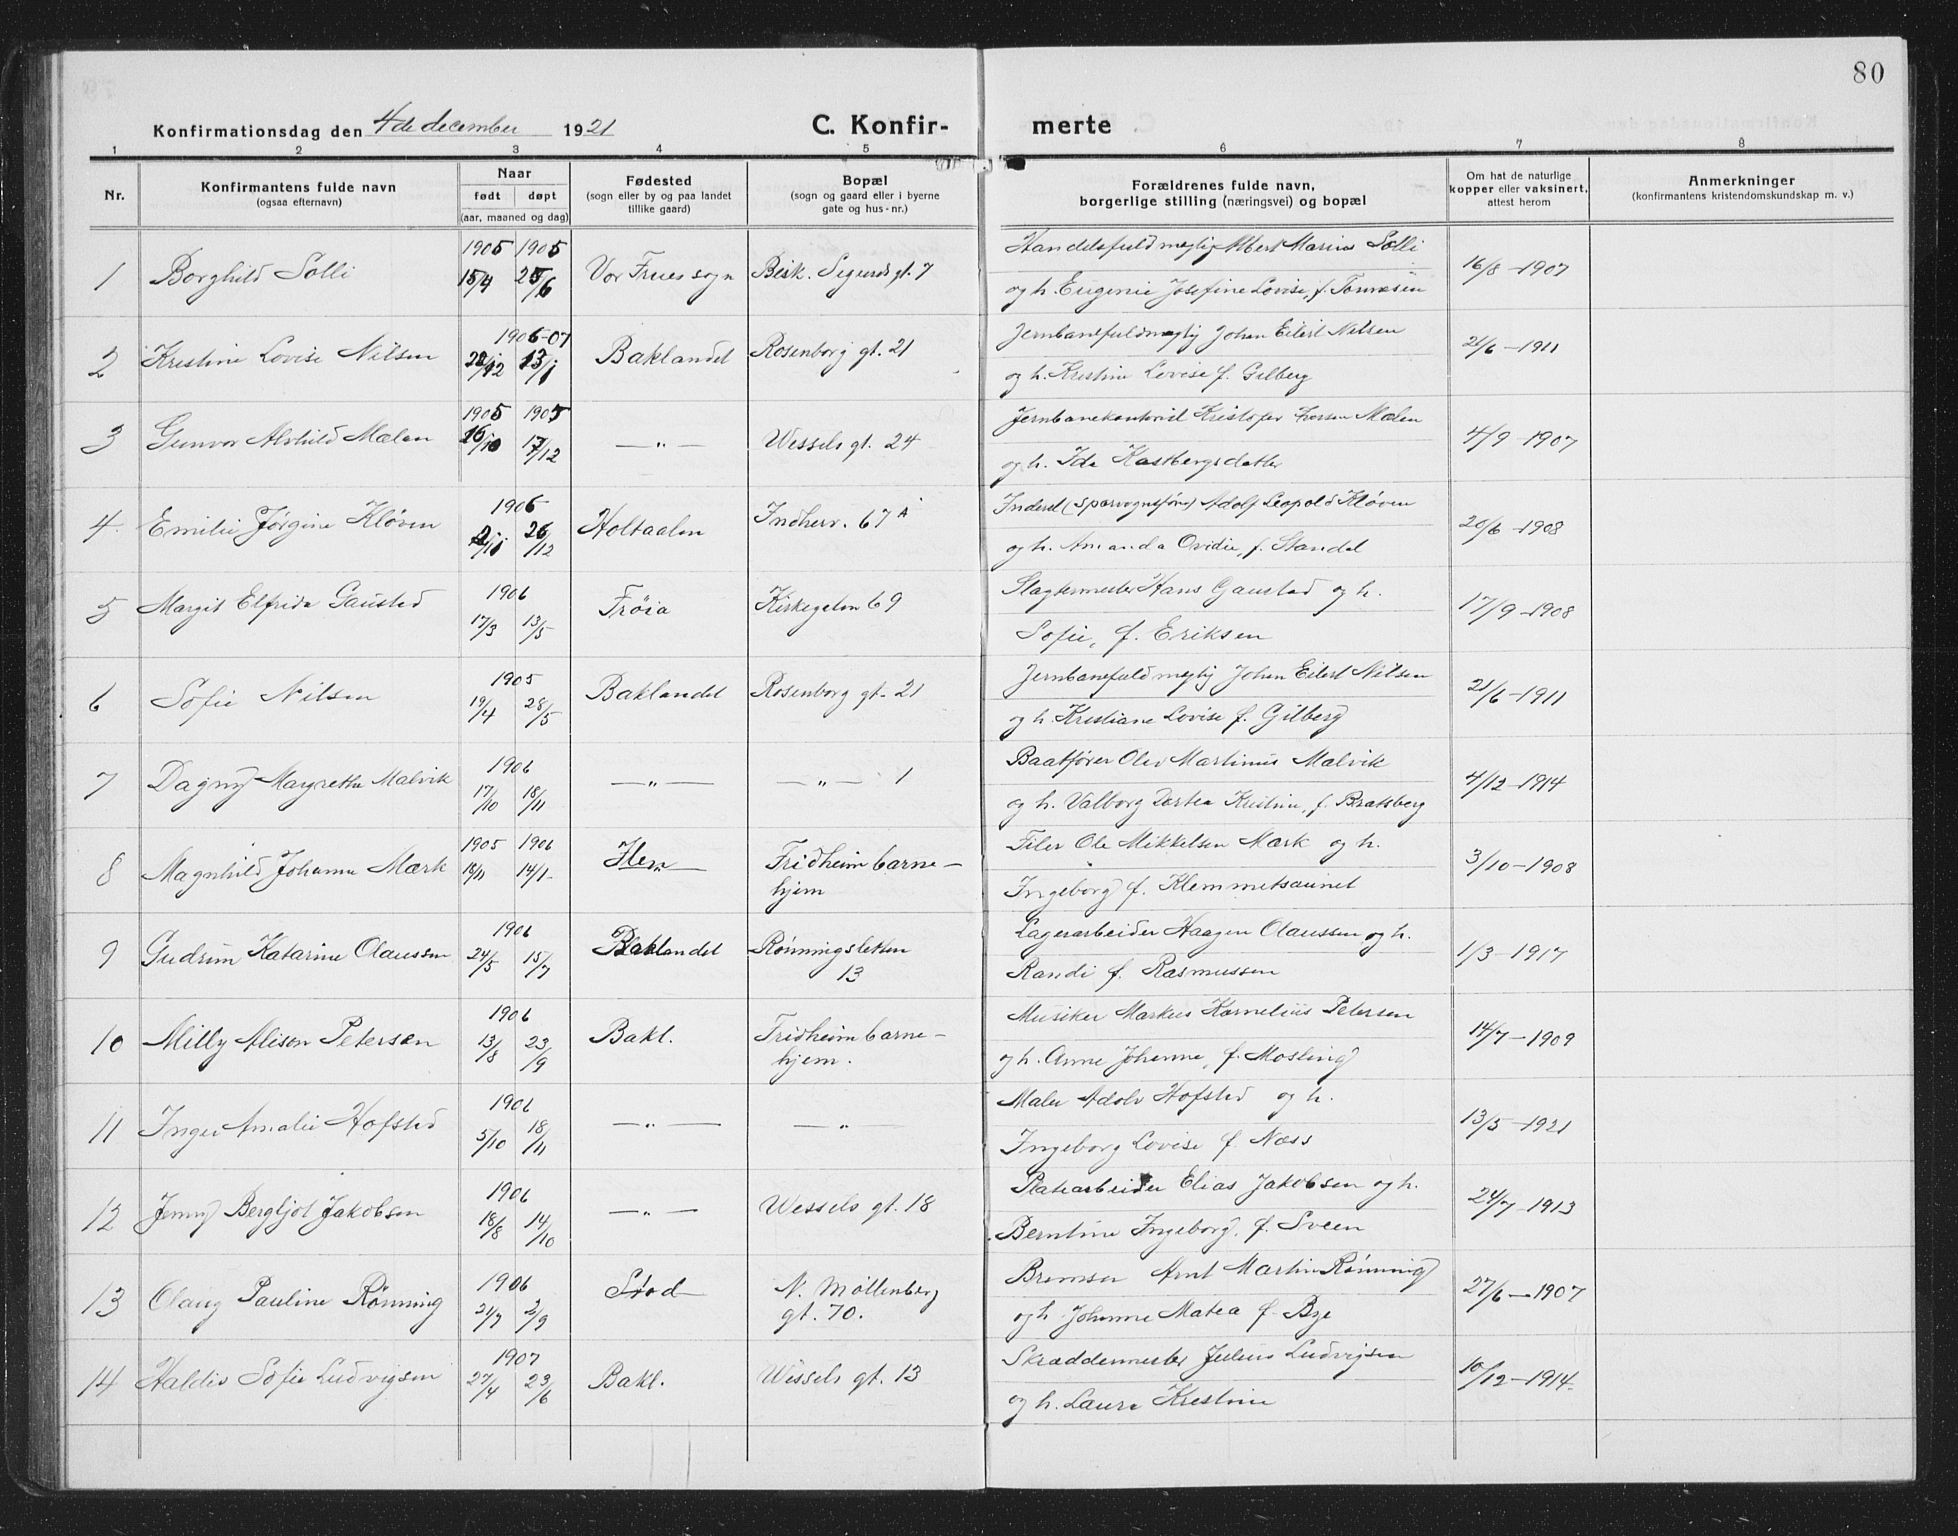 80
Konfirmationsdag den 4de december 1921 C. Konfir- merte
1 2 3 4 5 6 7 8
Nr. Konfirmantens fulde navn (ogsaa efternavn) Naar født døpt (aar, maaned og dag) Fødested (sogn eller by og paa landet tillike gaard) Bopæl (sogn og gaard eller i byerne gate og hus-nr.) Forældrenes fulde navn, borgerlige stilling (næringsvei) og bopæl Om hat de naturlige kopper eller vaksinert, attest herom Anmerkninger (konfirmantens kristendomskundskap m. v.)
1 Borghild Solli 1905 15/4 1905 25/6 Vor Frues sogn Bisk. Sigurds gt. 7 Handelsfuldmegtig Albert Marius Solli
og h. Eugenie Josefine Lovise, f. Tønnesen 16/8-1907
2 Kristine Lovise Nilsen 1906-07 28/12 13/1 Baklandet Rosenborg gt. 21 Jernbanefuldmegtig Johan Eilert Nilsen
og h. Kristine Lovise f. Gilberg 21/6-1911
3 Gunvor Alvhild Mælen 1905 16/10 1905 17/12 —„— Wessels gt. 24 Jernbanekontorist Kristofer Larsen Mælen
og h. Ida Kastbergsdatter 4/9-1907
4. Emilie Jørgine Kløven 1906 2/11 26/12 Holtaalen Indherv. 67 A Indersl (Sporvognsfører) Adolf Leopold Kløven
og h. Amanda Ovidie, f. Standal 20/6-1908
5 Margit Elfrida Gaustad 1906 17/3 13/5 Frøia Kirkegaten 69 Slagtermester Hans Gaustad og h.
Sofie, f. Eriksen 17/9-1908
6 Sofie Nilsen 1905 19/4 28/5 Baklandet Rosenborg gt. 21 Jernbanefuldmegtig Johan Eilert Nilsen
og h. Kristiane Lovise f. Gilberg 21/6-1911
7 Dagny Margrethe Malvik 1906 17/10 18/11 —„— —„— 1 Baatfører Olev Martinus Malvik
og h. Valborg Dortea Kristine, f. Bratsberg 4/12-1914
8 Magnhild Johanne Mærk 1905 18/11 1906 14/1 Ilen Fridheim barne-
hjem Filer Ole Mikkelsen Mærk og h.
Ingeborg f. Klemmetsaunet 3/10-1908
9 Gudrun Katarine Olaussen 1906 24/5 15/7 Baklandet Rønningsletten
13 Lagerarbeider Haagen Olaussen og h.
Randi f. Rasmussen 1/3-1917
10 Milly Alison Petersen 1906 13/8 23/9 Bakl. Fridheim barne-
hjem. Musiker Markus Kornelius Petersen
og h. Anne Johanne, f. Mosling 14/7-1909
11 Inger Amalie Hofstad 1906 5/10 18/11 —„— —„ Maler Adolv Hofstad og h.
Ingeborg Lovise f. Næss 13/5-1921
12 Jenny Bergljot Jakobsen 1906 18/8 14/10 —„— Wessels gt. 18 Platearbeider Elias Jakobsen og h.
Berntine Ingeborg, f. Sveen 24/7-1913
13 Olaug Pauline Rønning 1906 21/7 2/9 Stod N. Møllenberg
gt. 70. Bremser Arnt Martin Rønning
og h. Johanne Matea f. Bye 27/6-1907
14 Haldis Sofie Ludvigsen 1907 27/4 23/6 Bakl. Wessels gt. 13 Skræddermester Julius Ludvigsen
og h. Laura Kristine 10/12-1914.